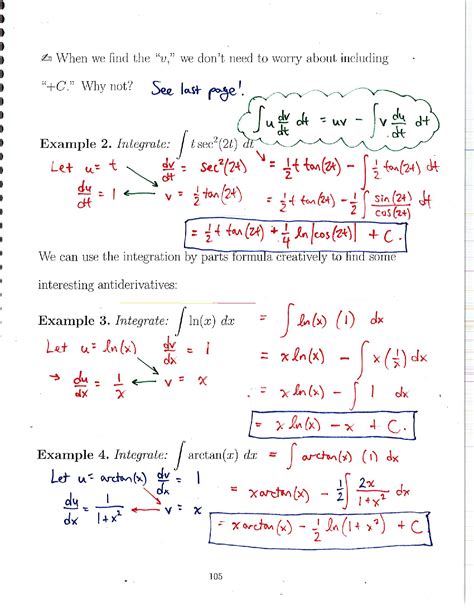 ✍ When we find the “v,” we don’t need to worry about including
“+C.” Why not? See last page!
∫ u dv/dt dt = uv − ∫ v du/dt dt
Example 2. Integrate: ∫ t sec²(2t) dt = ½ t tan(2t) − ∫ ½ tan(2t) dt
Let u = t dv/dt = sec²(2t)
du/dt = 1 v = ½ tan(2t) = ½ t tan(2t) − ½ ∫ sin(2t)/cos(2t) dt
= ½ t tan(2t) + ¼ ln|cos(2t)| + C.
We can use the integration by parts formula creatively to find some
interesting antiderivatives:
Example 3. Integrate: ∫ ln(x) dx = ∫ ln(x) (1) dx
Let u = ln(x) dv/dx = 1 = x ln(x) − ∫ x (1/x) dx
→ du/dx = 1/x v = x = x ln(x) − ∫ 1 dx
= x ln(x) − x + C.
Example 4. Integrate: ∫ arctan(x) dx = ∫ arctan(x) (1) dx
Let u = arctan(x) dv/dx = 1 = x arctan(x) − ½ ∫ 2x/1+x² dx
du/dx = 1/1+x² v = x
= x arctan(x) − ½ ln(1+x²) + C
105